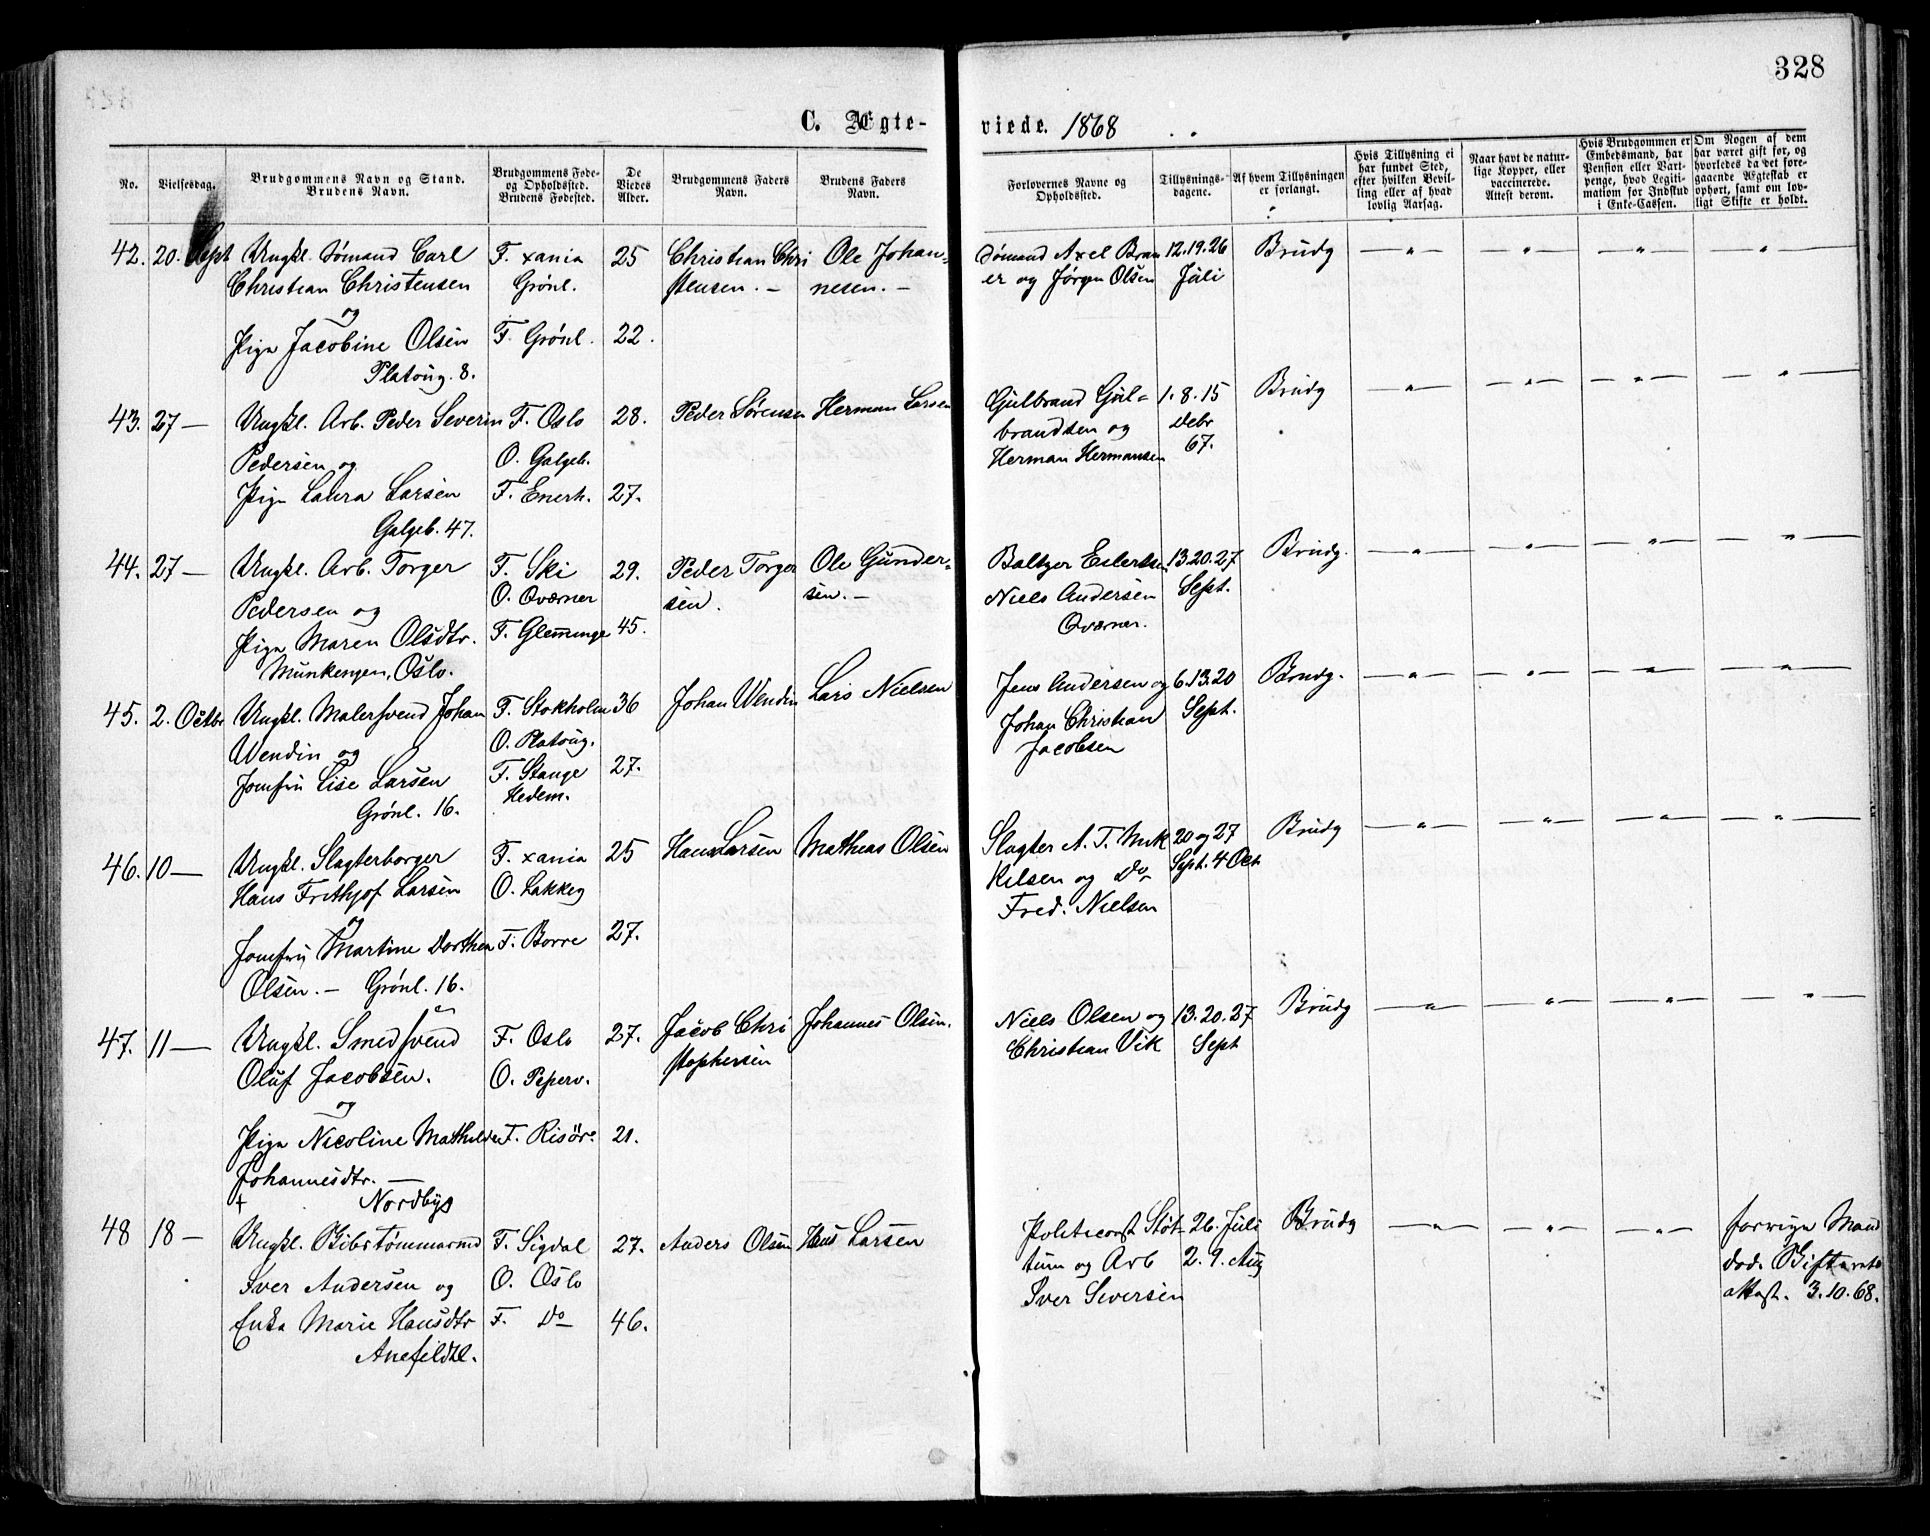 328
C. Ægte-
viede. 1868
No.
Vielsesdag.
Brudgommens Navn og Stand.
Brudens Navn.
Brudgommens Føde-
og Opholdssted.
Brudens Fødested.
De
Viedes
Alder.
Brudgommens Faders
Navn.
Brudens Faders
Navn.
Forlovernes Navne og
Opholdssted.
Tillysnings-
dagene.
Af hvem Tillysningen
er forlangt.
Hvis Tillysning ei
har fundet Sted,
efter hvilken Bevil-
ling eller af hvad
lovlig Aarsag.
Naar havt de natur-
lige Kopper, eller
vaccinerede.
Attest derom.
Hvis Brudgommen er
Embedsmand, har
Pension eller Vart-
penge, hvad Legiti-
mation for Indskud
i Enke-Cassen.
Om Nogen af dem
har været gift før, og
hvorledes da det fore-
gaaende Ægteskab er
ophørt, samt om lov-
ligt Skifte er holdt.
42. 20. Sept Ungkl. Sømand Carl F. xania 25 Christian Chri Ole Johan- Sømand Axel Bran 12. 19. 26 Brudg
Christian Christensen Grønl. stensen. - nesen. - er og Jørgen Olsen Juli
og
Pige Jacobine Olsen F. Grønl. 22.
Platoug. 8.
43. 27 — Ungkl. Arb. Peder Severin F. Oslo 28. Peder Sørensen Herman Larsen Gulbrand Gul- 1. 8. 15 Brudg
Pedersen og O. Galgeb. brandsen og Debr
Pige Laura Larsen F. Enerh. 27. Herman Hermansen 67.
Galgeb. 47.
44. 27 — Ungkl. Arb. Torger F. Ski 29. Peder Torger Ole Gunder- Baltzer Eilertsen 13. 20. 27 Brudg.
Pedersen og O. Qværner sen. sen. - Niels Andersen Sept.
Pige Maren Olsdtr. F. Glemminge 45. Qværner.
Munkengen, Oslo.
45. 2. Octbr Ungkl. Malersvend Johan F. Stokholm 36 Johan Wendin Lars Nielsen Jens Andersen og 6. 13. 20 Brudg.
Wendin og O. Platoug. Johan Christian Sept.
Jomfru Lise Larsen F. Stange 27. Jacobsen
Grønl. 16. Hedem.
46. 10 — Ungkl. Slagterborger F. xania 25 Hans Larsen Mathias Olsen Slagter A. T. Mik 20 og 27 Brudg
Hans Frithjof Larsen O. Lakkeg kelsen og Do Sept. 4 Oct
og Fred. Nielsen
Jomfru Martine Dorthea F. Borre 27.
Olsen. - Grønl. 16.
47. 11 — Ungkl. Smedsvend F. Oslo 27. Jacob Chri Johannes Olsen. Niels Olsen og 13. 20. 27 Brudg
Oluf Jacobsen. O. Peperv. stophersen Christian Vik Sept
og
Pige Nicoline Mathilde F. Risör. 21.
Johannesdtr. —
+ Nordbyg
48 18 — Ungkl. Bibstømmermd F. Sigdal 27. Anders Olsen Hans Larsen Politiconst Slot- 26. Juli Brudg forrige Mand
Iver Andersen og O. Oslo tum og Arb 2. 9. Aug død.
Enke Marie Hansdtr F. Do 46. Iver Seversen attest. 3.10.68.